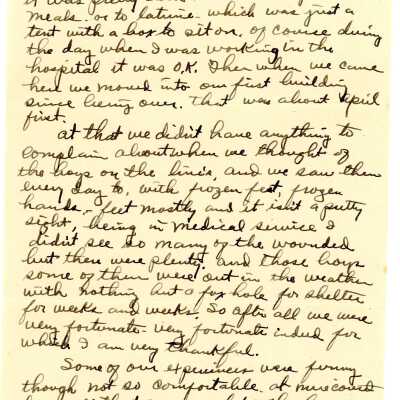 it was
meals. or to latrine which was just a
tent with a box to sit on, of course during
the day when I was working in the
hospital it was O.K. Then when we came
here we moved into our first building
since being over. That was about April
first.
At that we didn't have anything to
complain about when we thought of
the boys on the lines, and we saw them
every day to, with frozen feet, frozen
hands, - feet mostly and it isn't a pretty
sight, being in Medical service I
didn't see so many of the wounded
but there were plenty. and those boys
some of them were out in the weather
with nothing but a fox hole for shelter
for weeks and weeks. So after all we were
very fortunate very fortunate indeed for
which I am very thankful.
Some of our experiences were funny
though not so comfortable. at mirecourt